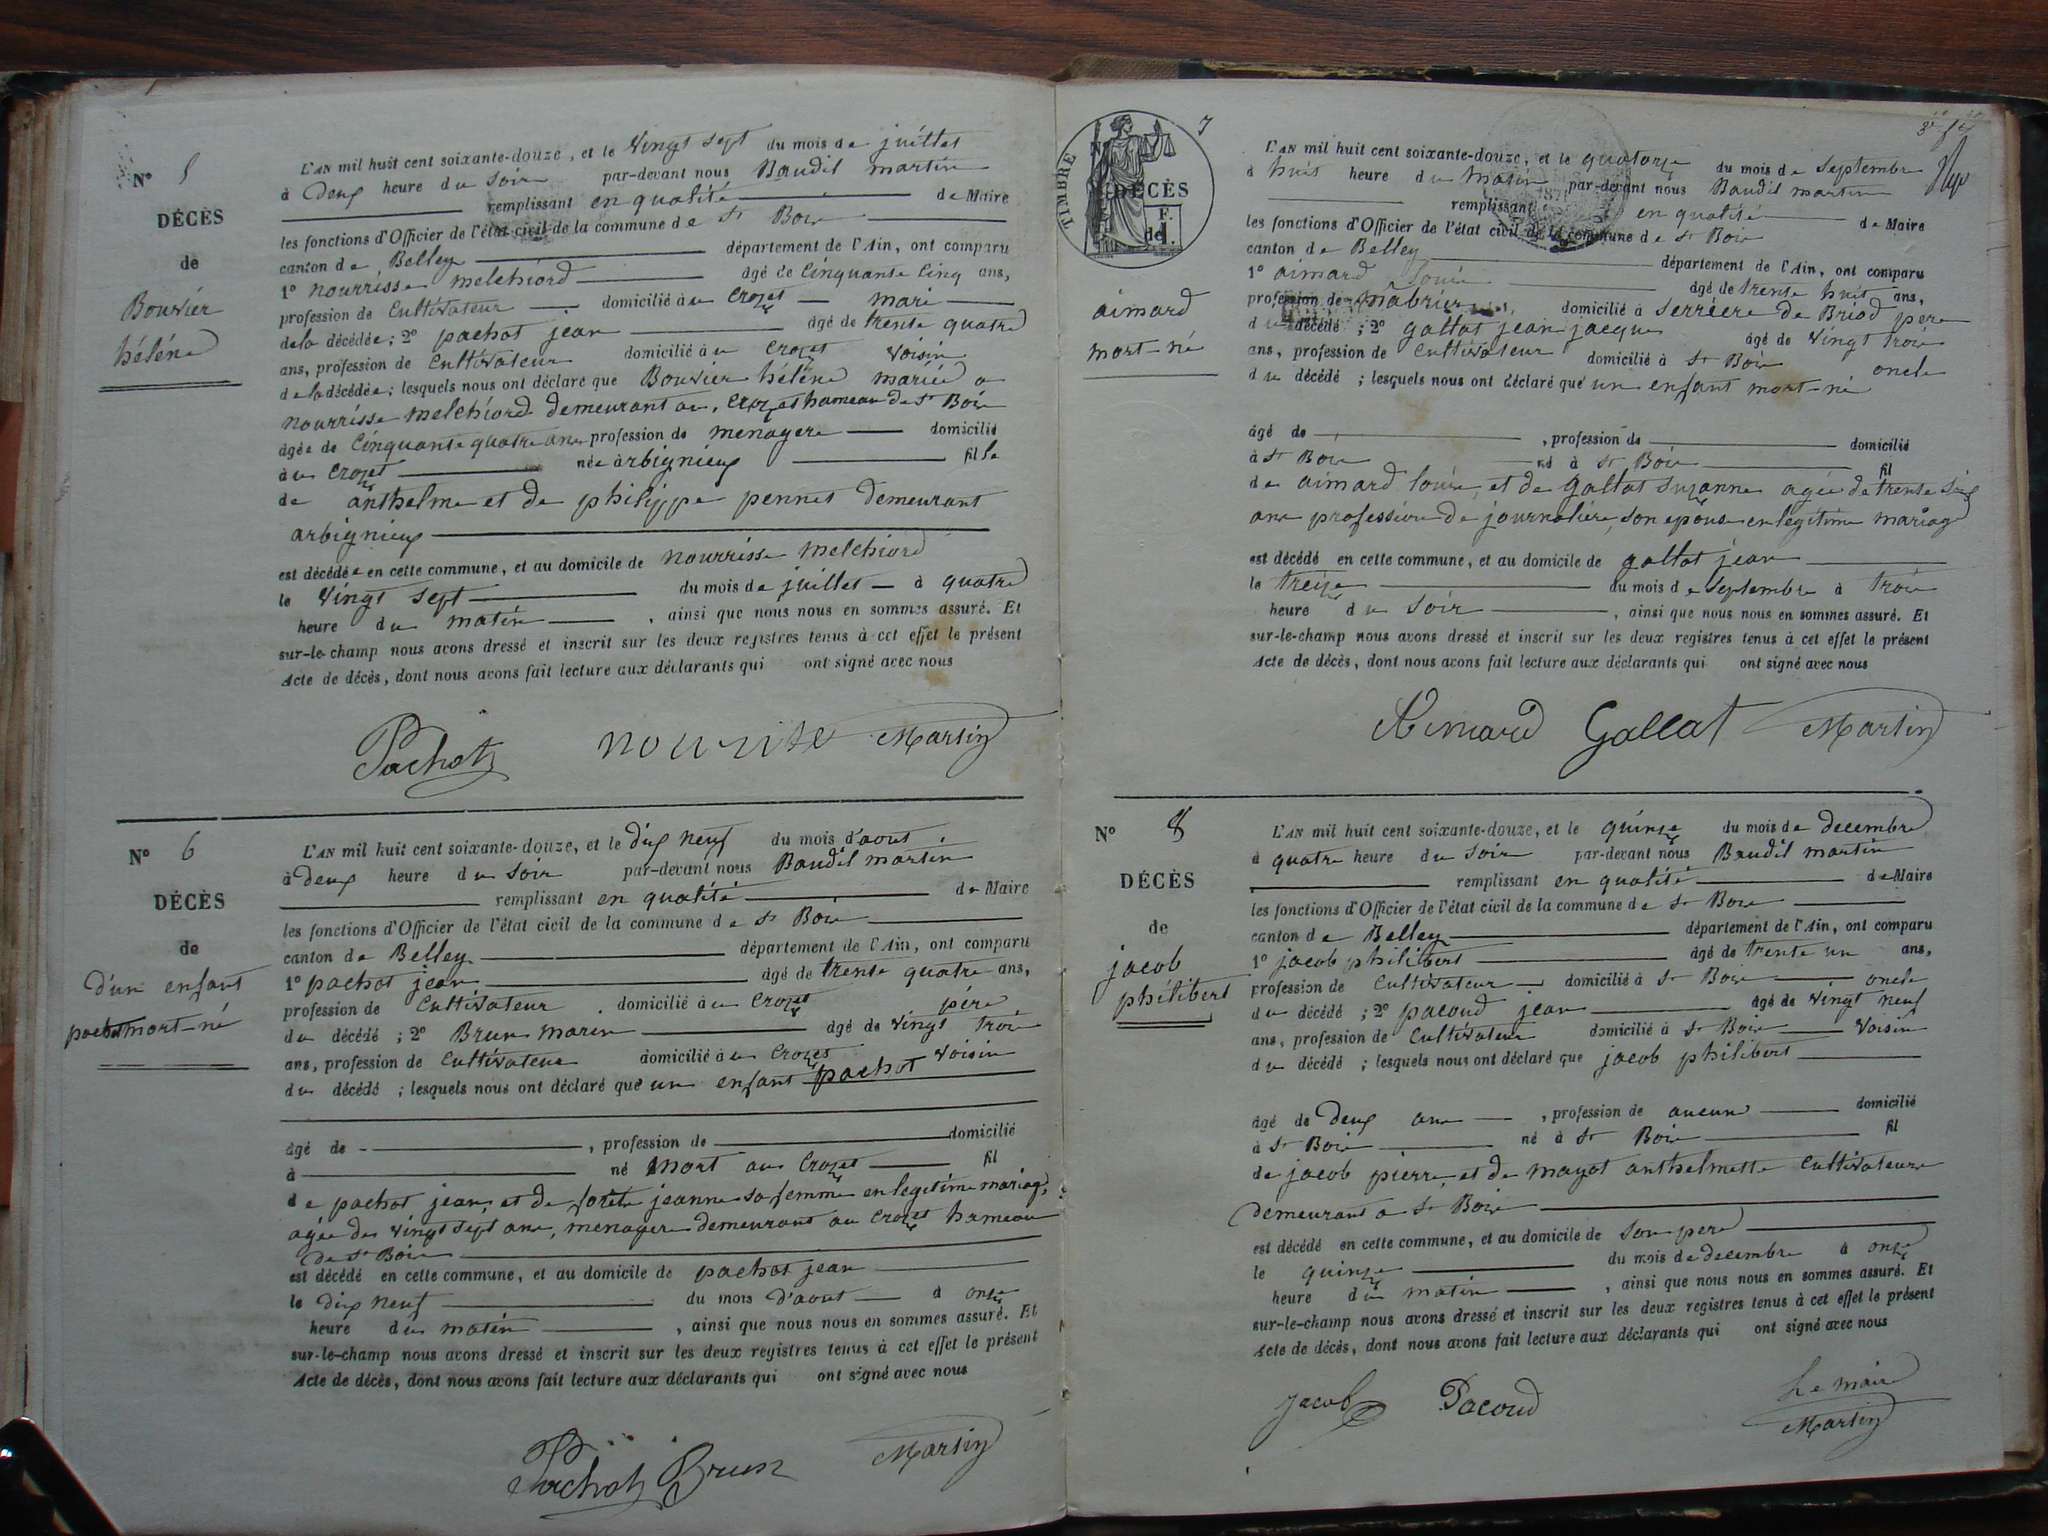 N° 5
DÉCÈS
de
Bouvier
hélène
L'AN mil huit cent soixante-douze, et le vingt sept du mois de juillet
à deux heure du soir par-devant nous Baudil martin
remplissant en qualité de Maire
les fonctions d'Officier de l'état civil de la commune de St Bois
canton de Belley département de l'Ain, ont comparu
1° nourrisse melchiord agé de Cinquante Cinq ans,
profession de Cultivateur domicilié à au Crozet mari
de la décédée; 2° pachot jean âgé de trente quatre
ans, profession de Cultivateur domicilié à au Crozet voisin
de la décédée; lesquels nous ont déclaré que Bouvier hélène mariée a
nourrisse melchiord demeurant au Crozet hameau de St Bois
âgée de Cinquante quatre ans profession de menagere domicilié
à au Crozet née à arbignieux fille
de anthelme et de philippe pennet demeurant
arbignieux
est décédée en cette commune, et au domicile de nourrisse melchiord
le vingt sept du mois de juillet à quatre
heure du matin, ainsi que nous nous en sommes assuré. Et
sur-le-champ nous avons dressé et inscrit sur les deux registres tenus à cet effet le présent
Acte de décès, dont nous avons fait lecture aux déclarants qui ont signé avec nous
Pachot Martin
N° 6
DÉCÈS
de
d'un enfant
pachot mort-né
L'AN mil huit cent soixante-douze, et le dix neuf du mois d'aout
à deux heure du soir par-devant nous Baudil martin
remplissant en qualité de Maire
les fonctions d'Officier de l'état civil de la commune de St Bois
canton de Belley département de l'Ain, ont comparu
1° pachot jean agé de trente quatre ans,
profession de Cultivateur domicilié à au Crozet père
du décédé; 2° Brun marin âgé de vingt trois
ans, profession de Cultivateur domicilié à au Crozet voisin
du décédé; lesquels nous ont déclaré que un enfant pachot
âgé de, profession de domicilié
à né mort au Crozet fil
de pachot jean, et de jeanne sa femme en legitime mariage,
agée de vingt sept ans, menagere demeurant au Crozet hameau
de St Bois
est décédé en cette commune, et au domicile de pachot jean
le dix neuf du mois d'aout à onze
heure du matin, ainsi que nous nous en sommes assuré. Et
sur-le-champ nous avons dressé et inscrit sur les deux registres tenus à cet effet le présent
Acte de décès, dont nous avons fait lecture aux déclarants qui ont signé avec nous
Pachot Brun Martin
N° 7
TIMBRE
DÉCÈS
de
aimard
mort-né
L'AN mil huit cent soixante-douze, et le quatorze du mois de septembre
à huit heure du matin par-devant nous Baudil martin
remplissant en qualité de Maire
les fonctions d'Officier de l'état civil de la commune de St Bois
canton de Belley département de l'Ain, ont comparu
1° aimard louis agé de trente huit ans,
profession de domicilié à serrière de Briod père
du décédé; 2° gallat jean jacque âgé de vingt trois
ans, profession de Cultivateur domicilié à St Bois oncle
du décédé; lesquels nous ont déclaré que un enfant mort-né
âgé de, profession de domicilié
à St Bois né à St Bois fil
de aimard louis, et de gallat suzanne agée de trente six
ans profession de journalière, son epouse en legitime mariage
est décédé en cette commune, et au domicile de gallat jean
le treize du mois de septembre à trois
heure du soir, ainsi que nous nous en sommes assuré. Et
sur-le-champ nous avons dressé et inscrit sur les deux registres tenus à cet effet le présent
Acte de décès, dont nous avons fait lecture aux déclarants qui ont signé avec nous
Aimard Gallat Martin
N° 8
DÉCÈS
de
jacob
philibert
L'AN mil huit cent soixante-douze, et le quinze du mois de decembre
à quatre heure du soir par-devant nous Baudil martin
remplissant en qualité de Maire
les fonctions d'Officier de l'état civil de la commune de St Bois
canton de Belley département de l'Ain, ont comparu
1° jacob philibert agé de trente un ans,
profession de Cultivateur domicilié à St Bois oncle
du décédé; 2° pacoud jean âgé de vingt neuf
ans, profession de Cultivateur domicilié à St Bois voisin
du décédé; lesquels nous ont déclaré que jacob philibert
âgé de deux ans, profession de aucune domicilié
à St Bois né à St Bois fil
de jacob pierre, et de mayot anthelmette Cultivateurs
demeurant a St Bois
est décédé en cette commune, et au domicile de son pere
le quinze du mois de decembre à onze
heure du matin, ainsi que nous nous en sommes assuré. Et
sur-le-champ nous avons dressé et inscrit sur les deux registres tenus à cet effet le présent
Acte de décès, dont nous avons fait lecture aux déclarants qui ont signé avec nous
Jacob Pacoud Le maire
Martin